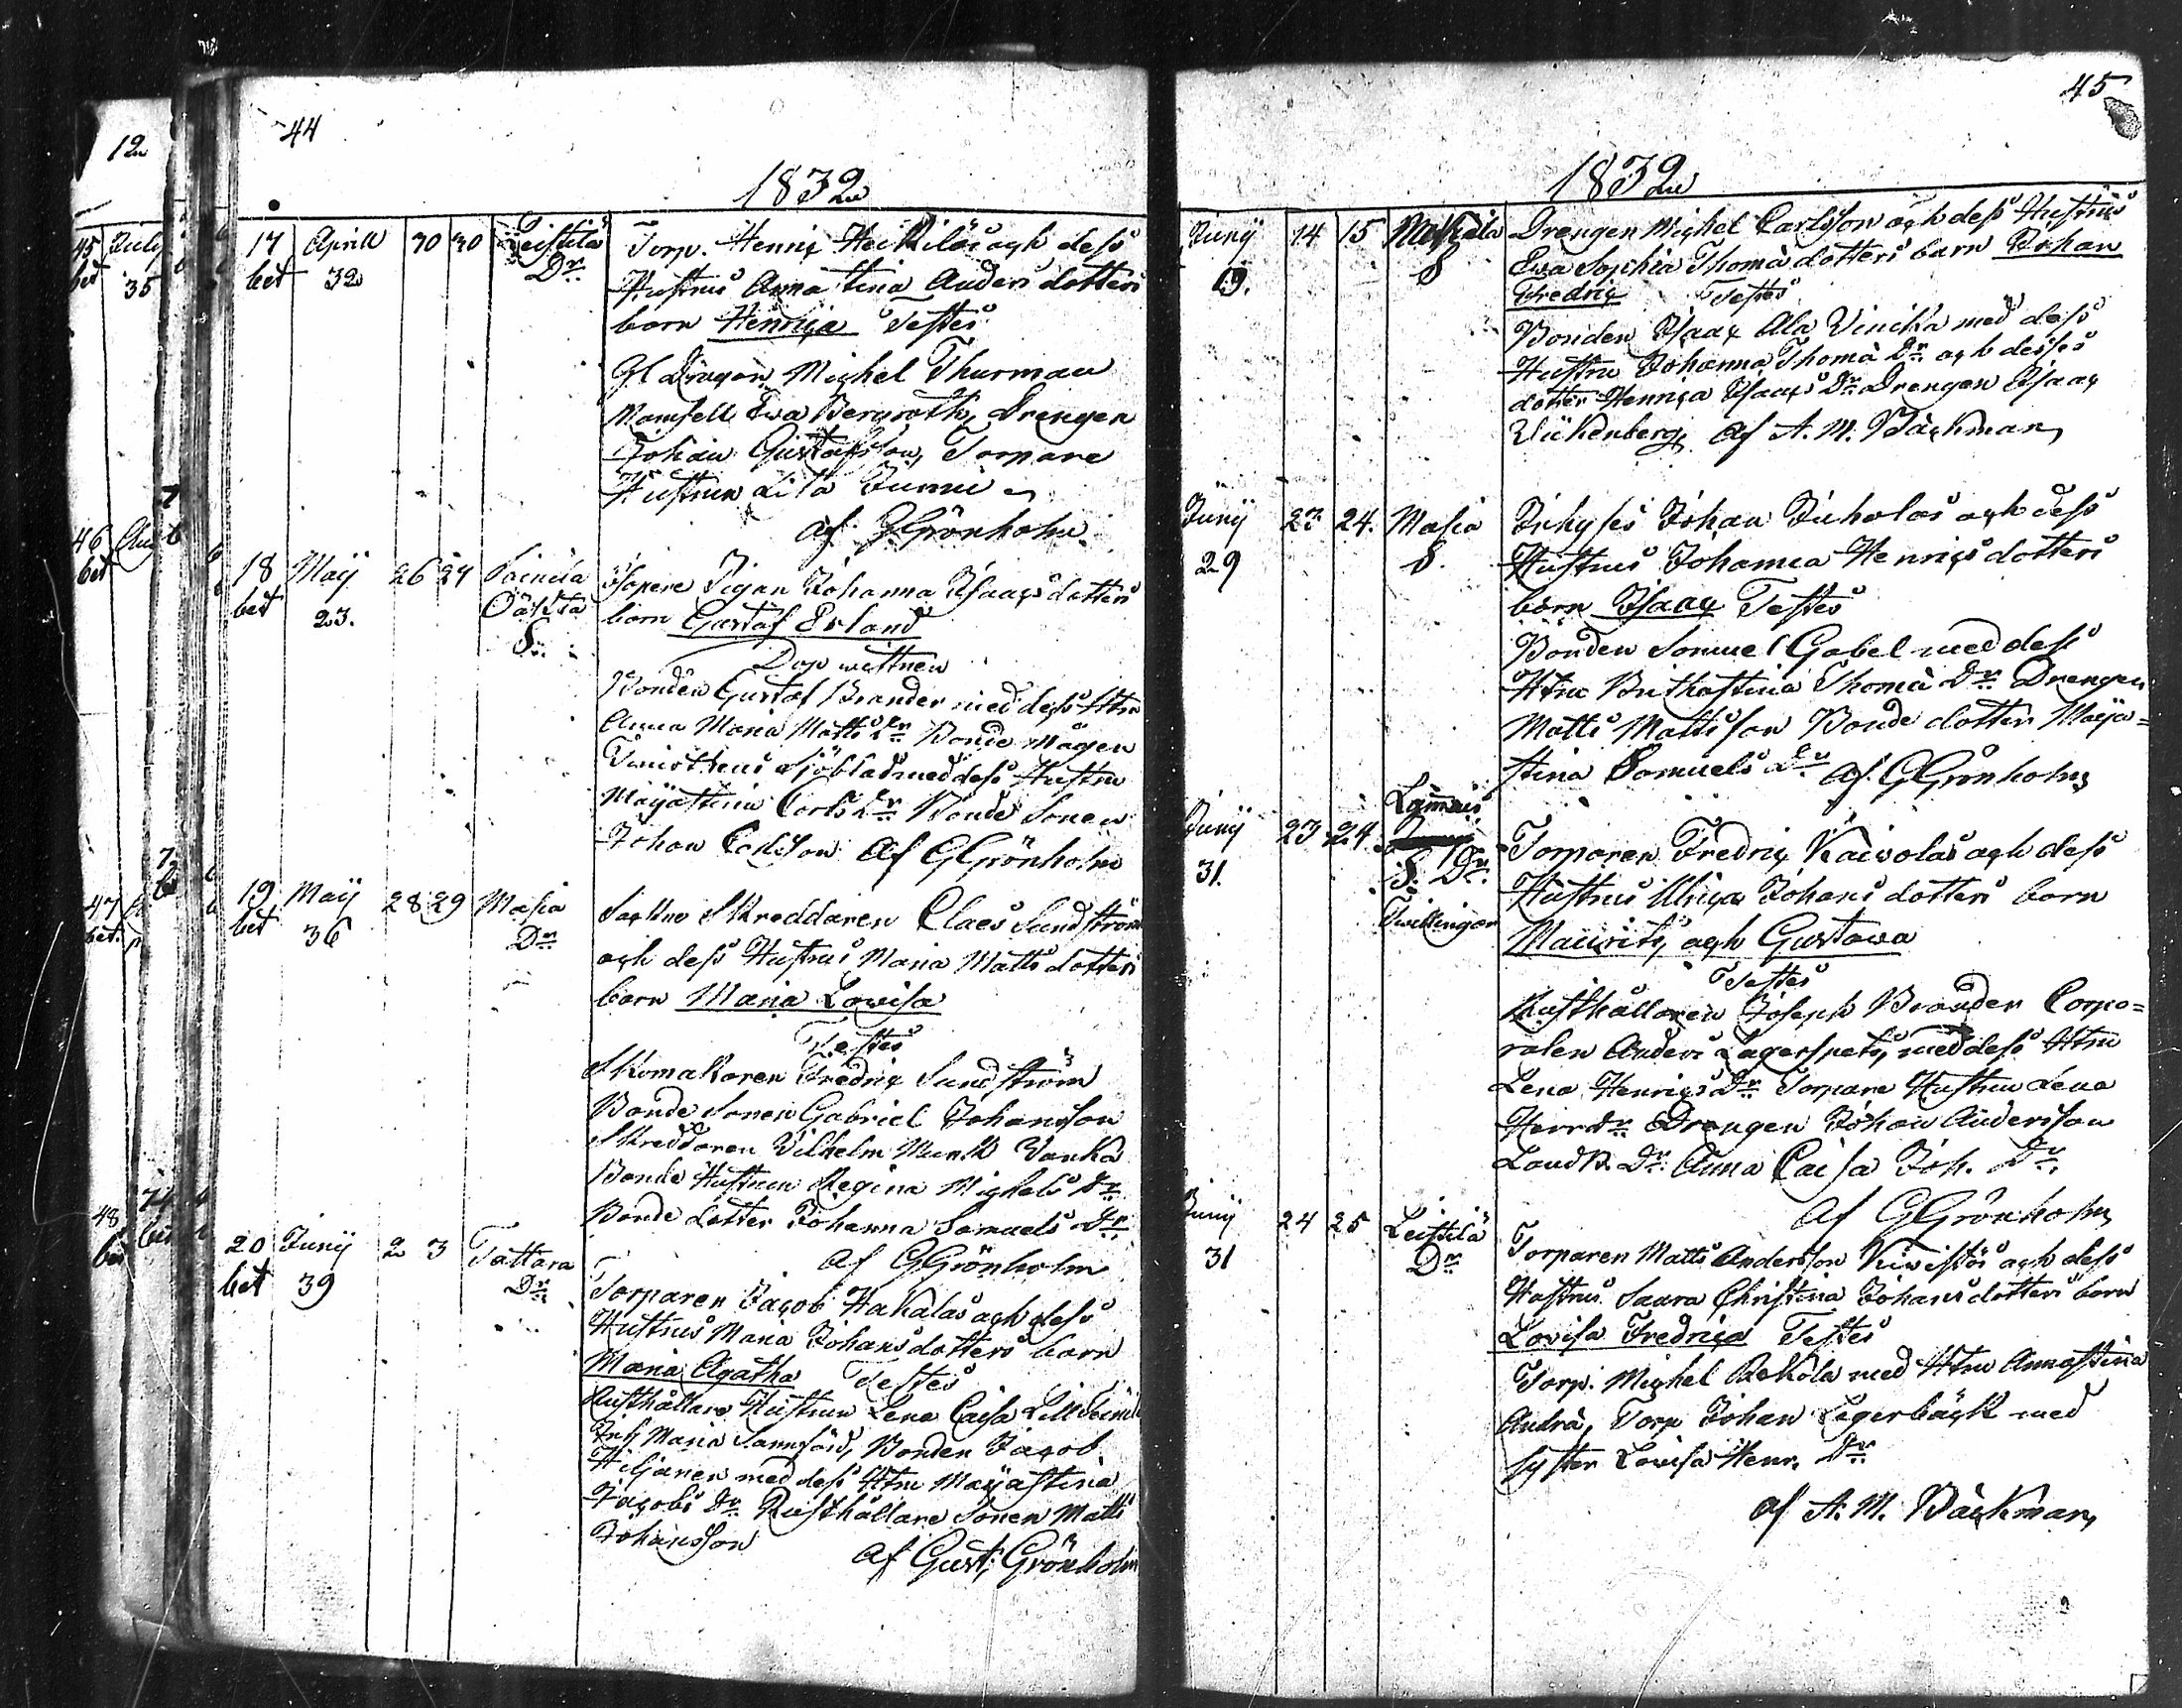 12
45 July
bet 35
46
bet
47
bet.
48
44
1832
17 Aprill 30 30 Leistilä
bet 32 Dr
Torp. Henriç Heikiläs och dess
Hustrus Anna Stina Anders dotters
barn Henriça Testes
Gl Dragon Michel Thurman
Mamsell Ewa Bergroth, Drengen
Johan Gustafsson, Torpare
Hustrun Lisa Junni
af GGrönholm
18 Maij 26 27
bet 23. S.
Pigan Johanna Isaacs dotters
barn Gustaf Erland
Dop wittnen
Bonden Gustaf Brander med dess Htru
Anna Maria Matts Dr Bonde mågen
Sjöblad med dess Hustru
Maijastina Carls Dr Bonde Sonen
Johan Carlsson af GGrönholm
19 Maij 28 29 Masia
bet 36 Dr
Sockne Skreddaren Claes Sundström
och dess Hustrus Maria Matts dotters
barn Maria Lovisa
Testes
Skomakaren Fredriç Sundström
Bonde Sonen Gabriel Johansson
Skreddaren Vilhelm Munk
Bonde Hustrun Regina Michels Dr
Bonde dotter Johanna Samuels Dr
af GGrönholm
20 Junij 2 3 Tattara
bet 39 Dr
Torparen Jacob Hakalas och dess
Hustrus Maria Johans dotters barn
Maria Agatha Testes
Rusthållare Hustrun Lena Caisa
Maria Bonden Jacob
Hiljanen med dess Htru Maijastina
Jacobs Dr Rusthållare Sonen Matts
Johansson af Gust. Grönholm
45
1832
Junij 14 15
19. S
Drengen Michel Carlsson och dess Hustrus
Ewa Sophia Thomä dotters barn Johan
Fredriç Testes
Bonden Isaac Ala Vinika med dess
Hustru Johanna Thomä Dr och desses
dotter Henriça Isaacs Dr Drengen Isaac
af A. M. Bäckman
Junij 23 24. Masia
29 S.
Johan Juholas och dess
Hustrus Johanna Henrics dotters
barn Isaac Testes
Bonden Samuel Gabel med dess
Htru Brithastina Thomä Dr Drengen
Matts Mattsson Bonde dotter Maija=
stina Samuels Dr af. GGrönholm
Junij 23 24 Lammais
31. S. Dr.
Twillingar
Torparen Fredriç Kaiwolas och dess
Hustrus Ulriça Johans dotters barn
Mauritz och Gustava
Testes
Rusthållaren Joseph Brander Corpo=
ralen Anders Lagerspets, med dess Htru
Lena Henrics Dr Torpare Hustrun Lena
Henr Dr Drengen Johan Andersson
Dr Anna Caisa Joh. Dr
af GGrönholm
Junij 24 25 Leistilä
31 Dr
Torparen Matts Andersson Kivistös och dess
Hustrus Saara Christina Johans dotters barn
Lovisa Fredriça Testes
Torp. Michel Rekola med Htru Annastina
Andrä, Torp Johan Legerbäck med
syster Lovisa Henr. Dr
af A. M. Bäckman